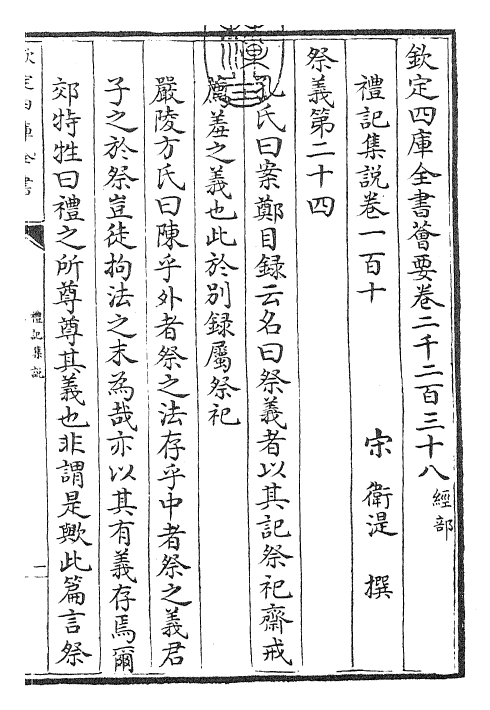 欽定四庫全書薈要卷二千二百三十八 經部
禮記集說卷一百十
宋 衛湜 撰
祭義第二十四
孔氏曰案鄭目録云名曰祭義者以其記祭祀齋戒
薦羞之義也此於別録屬祭祀
嚴陵方氏曰陳乎外者祭之法存乎中者祭之義君
子之於祭豈徒拘法之末為哉亦以其有義存焉爾
郊特牲曰禮之所尊尊其義也非謂是歟此篇言祭
欽定四庫全書
禮記集説
一